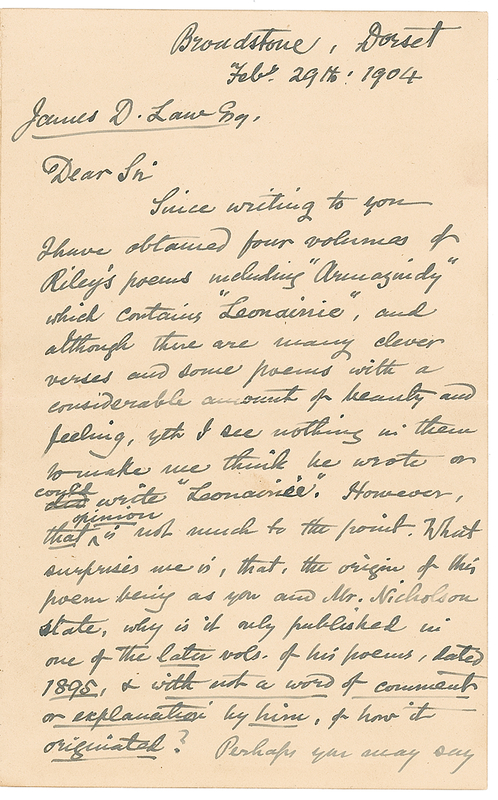 Broadstone, Dorset
Feby. 29th: 1904
James D. Law Esq.
Dear Sir
Since writing to you
I have obtained four volumes of
Riley's poems including "Armazindy"
which contains "Leonainie", and
although there are many clever
verses and some poems with a
considerable amount of beauty and
feeling, yet I see nothing in them
to make me think he wrote or
could
did write "Leonainie". However,
opinion
that ^ is not much to the point. What
surprises me is, that, the origin of this
poem being as you and Mr. Nicholson
state, why is it only published in
one of the later vols. of his poems, dated
1895, & with not a word of comment
or explanation by him, of how it
originated? Perhaps you may say